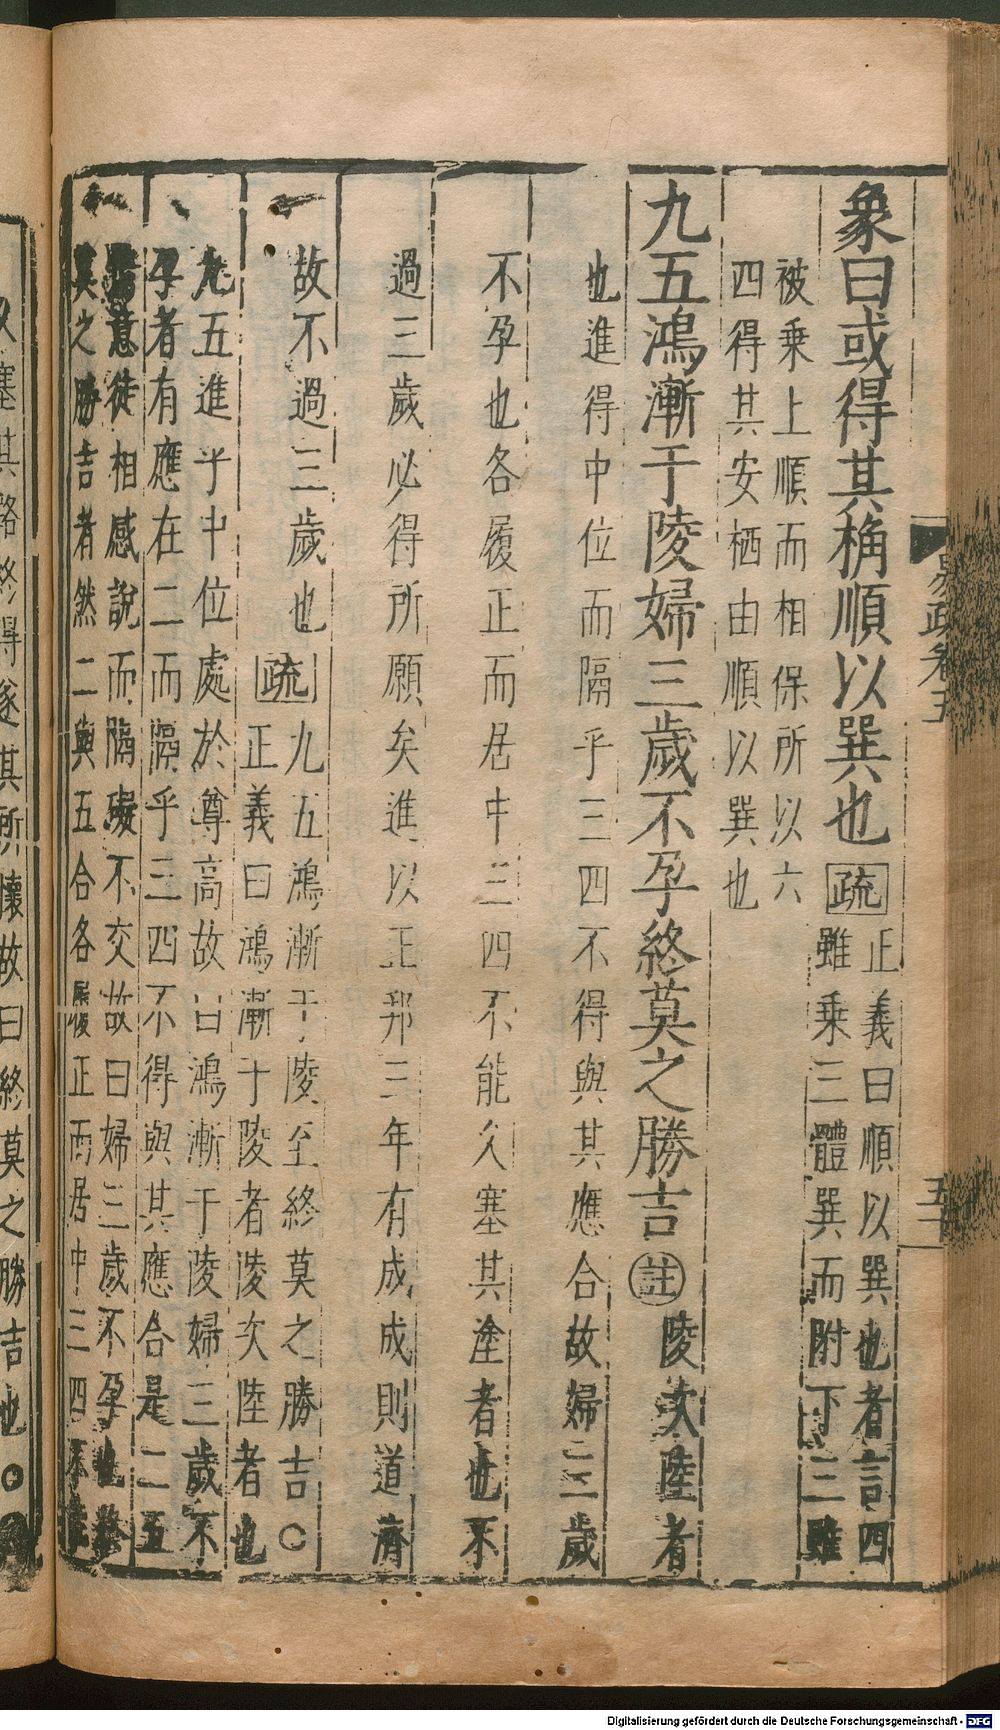 易疏卷五
五二
象曰或得其桷順以巽也疏
正義曰順以巽也者言四
雖乘三體巽而附下三雖
被乘上順而相保所以六
四得其安栖由順以巽也
九五鴻漸于陵婦三歲不孕終莫之勝吉註陵次陸者
也進得中位而隔乎三四不得與其應合故婦三歲
不孕也各履正而居中三四不能久塞其塗者也不
過三歲必得所願矣進以正邦三年有成成則道濟
故不過三歲也疏
九五鴻漸于陵至終莫之勝吉○
正義曰鴻漸于陵者陵次陸者也
九五進乎中位處於尊高故曰鴻漸于陵婦三歲不
孕者有應在二而隔乎三四不得與其應合是二五
意徒相感說而隔礙不交故曰婦三歲不孕也終
莫之勝吉者然二與五合各履正而居中三四不
塞其路終得遂其所懷故曰終莫之勝吉也○
Digitalisierung gefördert durch die Deutsche Forschungsgemeinschaft - DFG